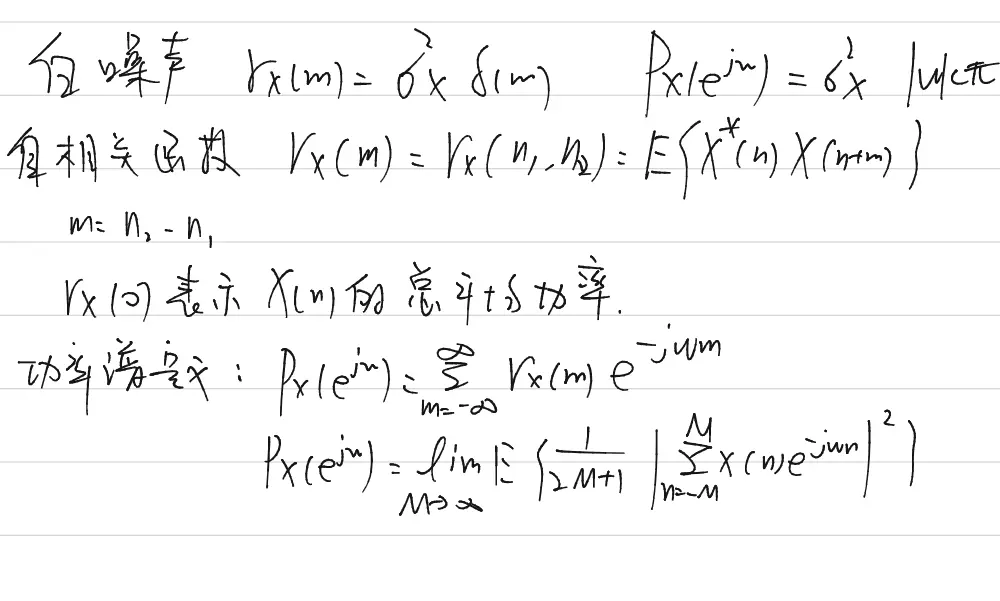 白噪声 r_X(m) = σ²_X δ(m) P_X(e^{jω}) = σ²_X |ω|<π
自相关函数 r_X(m) = r_X(n₁, n₂) = E{X*(n) X(n+m)}
m = n₂ - n₁
r_X(0) 表示 X(n) 的总平均功率.
功率谱定义: P_X(e^{jω}) = ∑_{m=-∞}^{∞} r_X(m) e^{-jωm}
P_X(e^{jω}) = lim_{M→∞} E{ 1/(2M+1) |∑_{n=-M}^{M} X(n)e^{-jωn}|² }